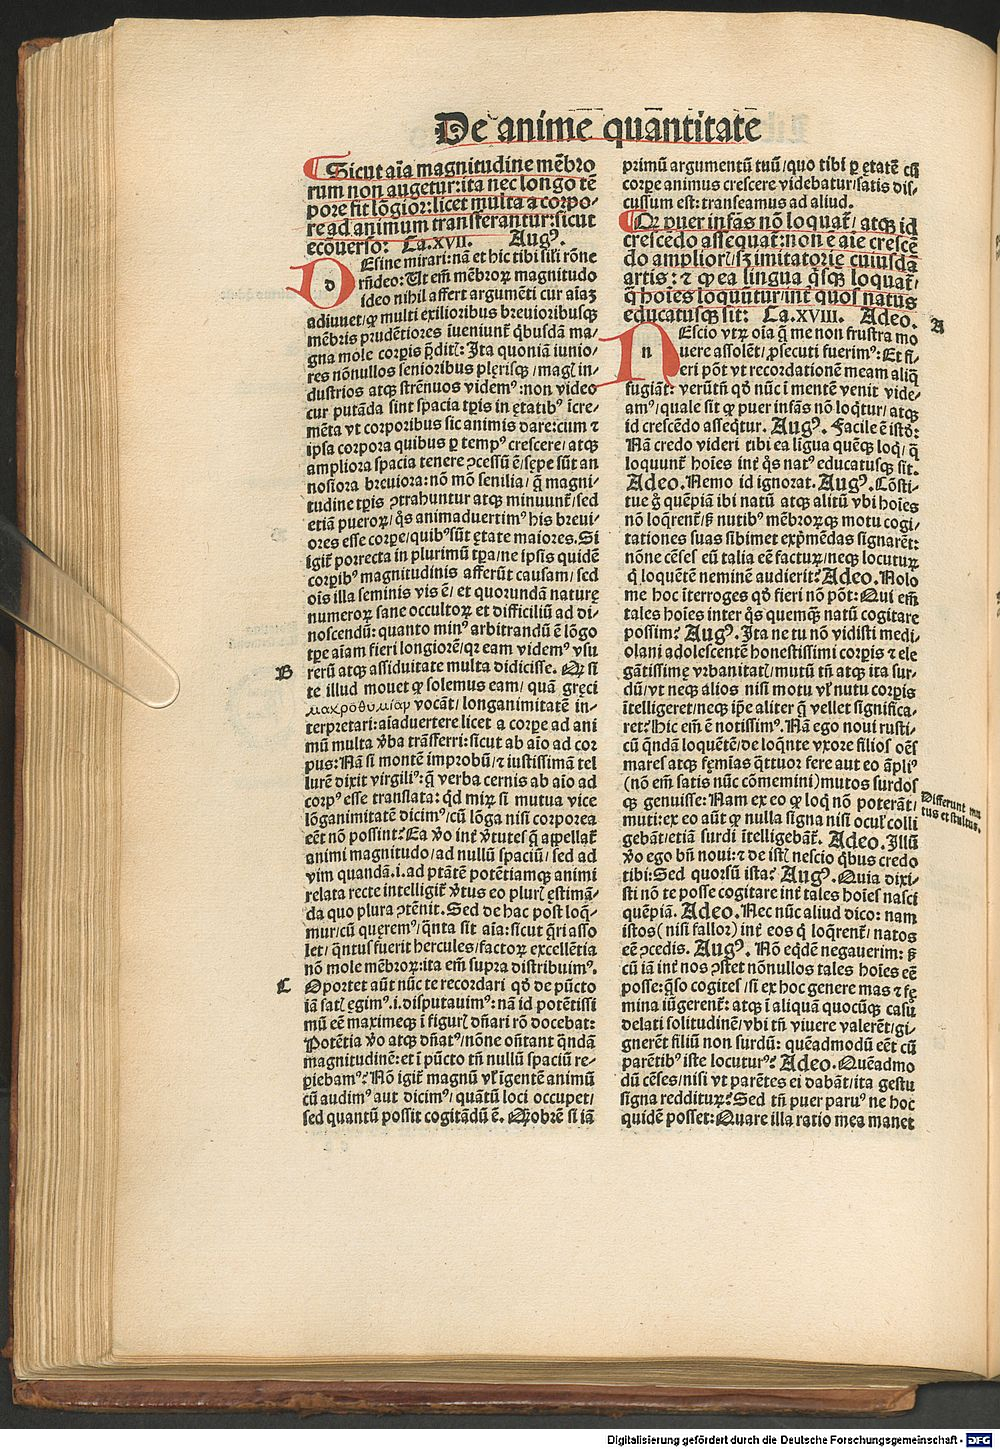 De anime quantitate
Sicut aīa magnitudine mēbro
rum non augetur: ita nec longo tē
pore fit lōgior: licet multa a corpo-
re ad animum transferantur: sicut
ecōuerso: Ca. XVII. Augꝰ.
DEsine mirari: nā et hic tibi sili rōne
rn̄deo: Ut em̄ mēbroꝝ magnitudo
ideo nihil affert argumēti cur aīaꝫ
adiuuet/ ꝙ multi exilioribus breuioribusqꝫ
mēbris prudētiores iueniunt̄ qͥbusdā ma-
gna mole corꝑis p̄ditꝭ: Ita quoniā iunio/
res nōnullos senioribus plęrisqꝫ/ magꝭ in-
dustrios atqꝫ strēnuos videmꝰ: non video
cur putāda sint spacia tꝑis in ętatibꝰ īcre-
mēta vt corporibus sic animis dare: cum ⁊
ipsa corpora quibus ꝑ tempꝰ crescere/ atqꝫ
ampliora spacia tenere ꝯcessū ē/ sępe sūt an
nosiora breuiora: nō mō senilia/ q̄ magni-
tudine tꝑis ꝯtrahuntur atqꝫ minuunt̄/ sed
etiā pueroꝝ/ qͦs animaduertimꝰ his breui-
ores esse corꝑe/ quibꝰ sūt ętate maiores. Si
igit̄ porrecta in plurimū tꝑa/ ne ipsis quidē
corꝑibꝰ magnitudinis afferūt causam/ sed
oīs illa seminis vis ē/ et quorundā naturę
numeroꝝ sane occultoꝝ et difficiliū ad di-
noscendū: quanto minꝰ arbitrandū ē lōgo
tꝑe aīam fieri longiorē/ qꝛ eam videmꝰ vsu
rerū atqꝫ assiduitate multa didicisse. Qꝛ si
B
te illud mouet ꝙ solemus eam/ quā gręci
μακροθυμίαν vocāt/ longanimitatē in-
terpretari: aīaduertere licet a corpe ad ani
mū multa v̄ba trāsferri: sicut ab aīo ad cor
pus: Nā si montē improbū/ ⁊ iustissimā tel
lurē dixit virgiliꝰ: q̄ verba cernis ab aīo ad
corpꝰ esse translata: qͥd miꝝ si mutua vice
lōganimitatē dicimꝰ/ cū lōga nisi corporea
eē̄t nō possint? Ea v̄o int̄ v̄tutes q̄ appellat̄
animi magnitudo/ ad nullū spaciū/ sed ad
vim quandā .i. ad ptātē potētiamqꝫ animi
relata recte intelligit̄ v̄tus eo plurꝭ ęstimā-
da quo plura ꝯtēnit. Sed de hac post loq̄-
mur/ cū quęremꝰ/ qͣnta sit aīa: sicut q̄ri asso
let/ qͣntus fuerit hercules/ factoꝝ excellētia
nō mole mēbroꝝ: ita em̄ supra distribuimꝰ.
C
Oportet aūt nūc te recordari qd̄ de pūcto
iā satꝭ ęgimꝰ .i. disputauimꝰ: nā id potētissi
mū eē maximeqꝫ ī figurꝭ dn̄ari rō docebat:
Potētia v̄o atqꝫ dn̄atꝰ/ nōne on̄tant qͣndā
magnitudinē: et ī pūcto tn̄ nullū spaciū re-
ꝑiebamꝰ? Nō igit̄ magnū vl̄ īgentē animū
cū audimꝰ aut dicimꝰ/ quātū loci occupet/
sed quantū possit cogitādū ē. Qꝛobrē si iā
primū argumentū tuū/ quo tibi ꝑ ętatē cū
corꝑe animus crescere videbatur/ satis dis-
cussum est: transeamus ad aliud.
Qꝛ puer infās nō loquat̄/ atqꝫ id
crescēdo assequat̄: non ē aīe crescē
do ampliorꝭ/ sꝫ imitatorię cuiusdā
artis: ⁊ ꝙ ea lingua qͥsqꝫ loquat̄/
q̄ hoīes loquūtur/ int̄ quos natus
educatusqꝫ sit: Ca. XVIII. Adeo.
A
NEscio vtꝝ oīa q̄ me non frustra mo
uere assolēt/ ꝓsecuti fuerimꝰ: Et fi-
eri pōt vt recordationē meam aliqͣ
fugiāt: verūtn̄ qd̄ nūc ī mentē venit vide-
amꝰ/ quale sit ꝙ puer infās nō loqͣtur/ atqꝫ
id crescēdo asseqͣtur. Augꝰ. Facile ē istd̄:
Nā credo videri tibi ea līgua quēqꝫ loqͥ/ q̄
loquunt̄ hoīes int̄ qͦs natꝰ educatusqꝫ sit.
Adeo. Nemo id ignorat. Augꝰ. Cōsti-
tue gͦ quēpiā ibi natū atqꝫ alitū vbi hoīes
nō loq̄rent̄/ sꝫ nutibꝰ mēbroꝝqꝫ motu cogi/
tationes suas sibimet exp̄mēdas signarēt:
nōne cēses eū talia eē factuꝝ/ neqꝫ locutuꝝ
qͥ loquētē neminē audierit? Adeo. Nolo
me hoc īterroges qd̄ fieri nō pōt: Qui em̄
tales hoīes inter qͦs quemqꝫ natū cogitare
possim? Augꝰ. Ita ne tu nō vidisti medi-
olani adolescentē honestissimi corꝑis ⁊ ele
gātissimę vrbanitatꝭ/ mutū tn̄ atqꝫ ita sur-
dū/ vt neqꝫ alios nisi motu vl̄ nutu corꝑis
ītelligeret/ neqꝫ ip̄e aliter q̄ vellet significa-
ret? Hic em̄ ē notissimꝰ. Nā ego noui rusti-
cū qͣndā loquētē/ de loqͣnte vxore filios oēs
mares atqꝫ fęmīas qͣttuor fere aut eo āpliꝰ
(nō em̄ satis nūc cōmemini) mutos surdos
qꝫ genuisse: Nam ex eo ꝙ loqͥ nō poterāt/
muti: ex eo aūt ꝙ nulla signa nisi oculꝭ colli
gebāt/ etiā surdi ītelligebāt̄. Adeo. Illū
Differunt mu
tus et stultus.
v̄o ego bn̄ noui: ⁊ de istꝭ nescio qͥbus credo
tibi: Sed quorsū ista? Augꝰ. Quia dixi-
sti nō te posse cogitare int̄ tales hoīes nasci
quēpiā. Adeo. Nec nūc aliud dico: nam
istos (nisi fallor) int̄ eos qͥ loq̄rent̄/ natos
eē ꝯcedis. Augꝰ. Nō eqͥdē negauerim: sꝫ
cū iā int̄ nos ꝯstet nōnullos tales hoīes eē
posse: q̄so cogites/ si ex hoc genere mas ⁊ fę
mina iūgerent̄: atqꝫ ī aliquā quocūqꝫ casu
delati solitudinē/ vbi tn̄ viuere valerēt/ gi-
gnerēt filiū non surdū: quēadmodū eēt cū
parētibꝰ iste locuturꝰ? Adeo. Quēadmo
dū cēses/ nisi vt parētes ei dabāt/ ita gestu
signa redditurꝰ? Sed tn̄ puer paruꝰ ne hoc
quidē posset: Quare illa ratio mea manet
Digitalisierung gefördert durch die Deutsche Forschungsgemeinschaft - DFG